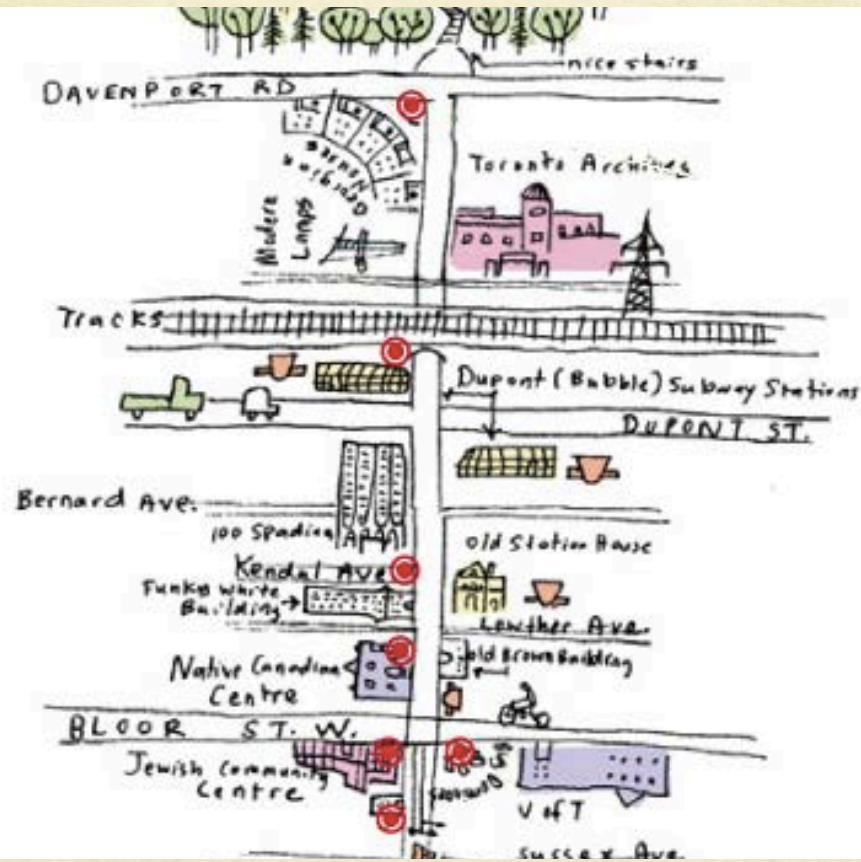 nice stairs
DAVENPORT RD
Toronto Archives
Georgian
Houses
Modern
Lamps
Tracks
Dupont (Bubble) Subway Stations
DUPONT ST.
Bernard Ave.
100 Spadina
Old Station House
Kendal Ave
Funky White
Building
Lowther Ave.
old Brown Building
Native Canadian
Centre
BLOOR ST. W.
Jewish Community
Centre
U of T
Sussex Ave.